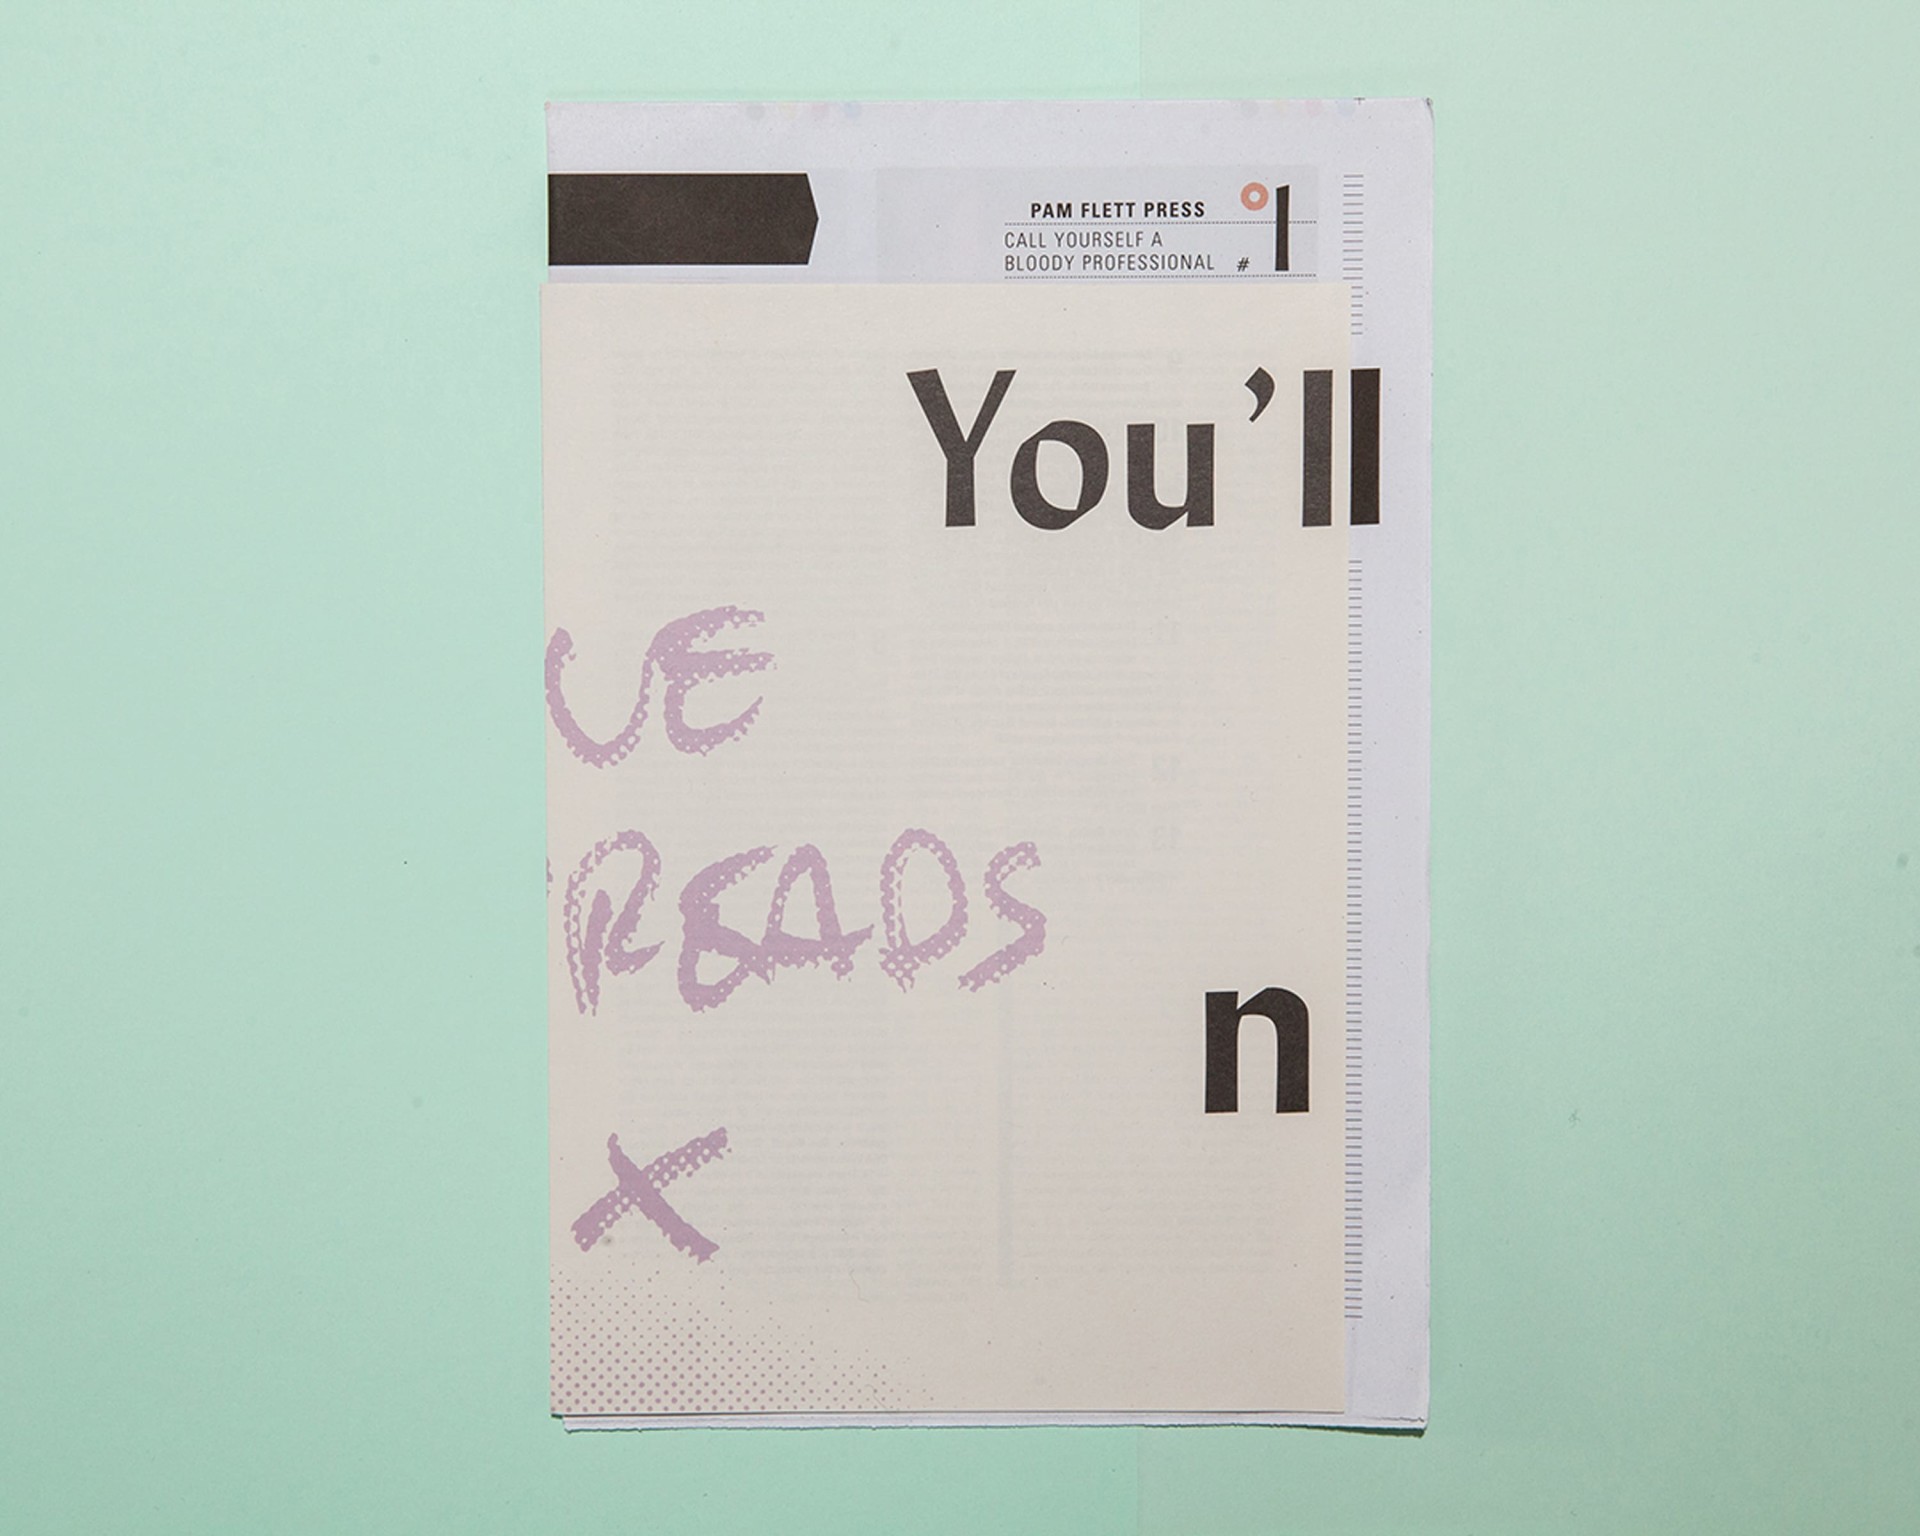 PAM FLETT PRESS
CALL YOURSELF A
BLOODY PROFESSIONAL # 1
You'll
UE
READS
n
X